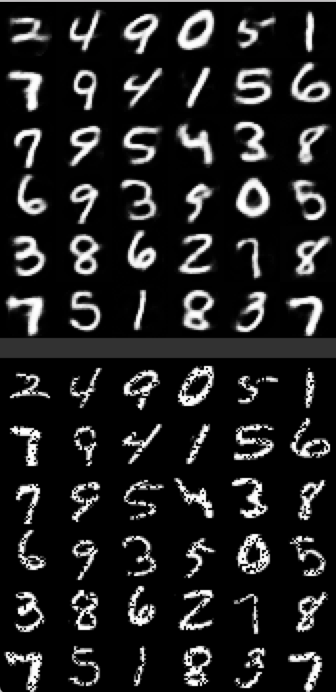 2 4 9 0 5 1
7 9 4 1 5 6
7 9 5 4 3 8
6 9 3 9 0 5
3 8 6 2 7 8
7 5 1 8 3 7
2 4 9 0 5 1
7 9 4 1 5 6
7 9 5 4 3 8
6 9 3 5 0 5
3 8 6 2 7 8
7 5 1 8 3 7